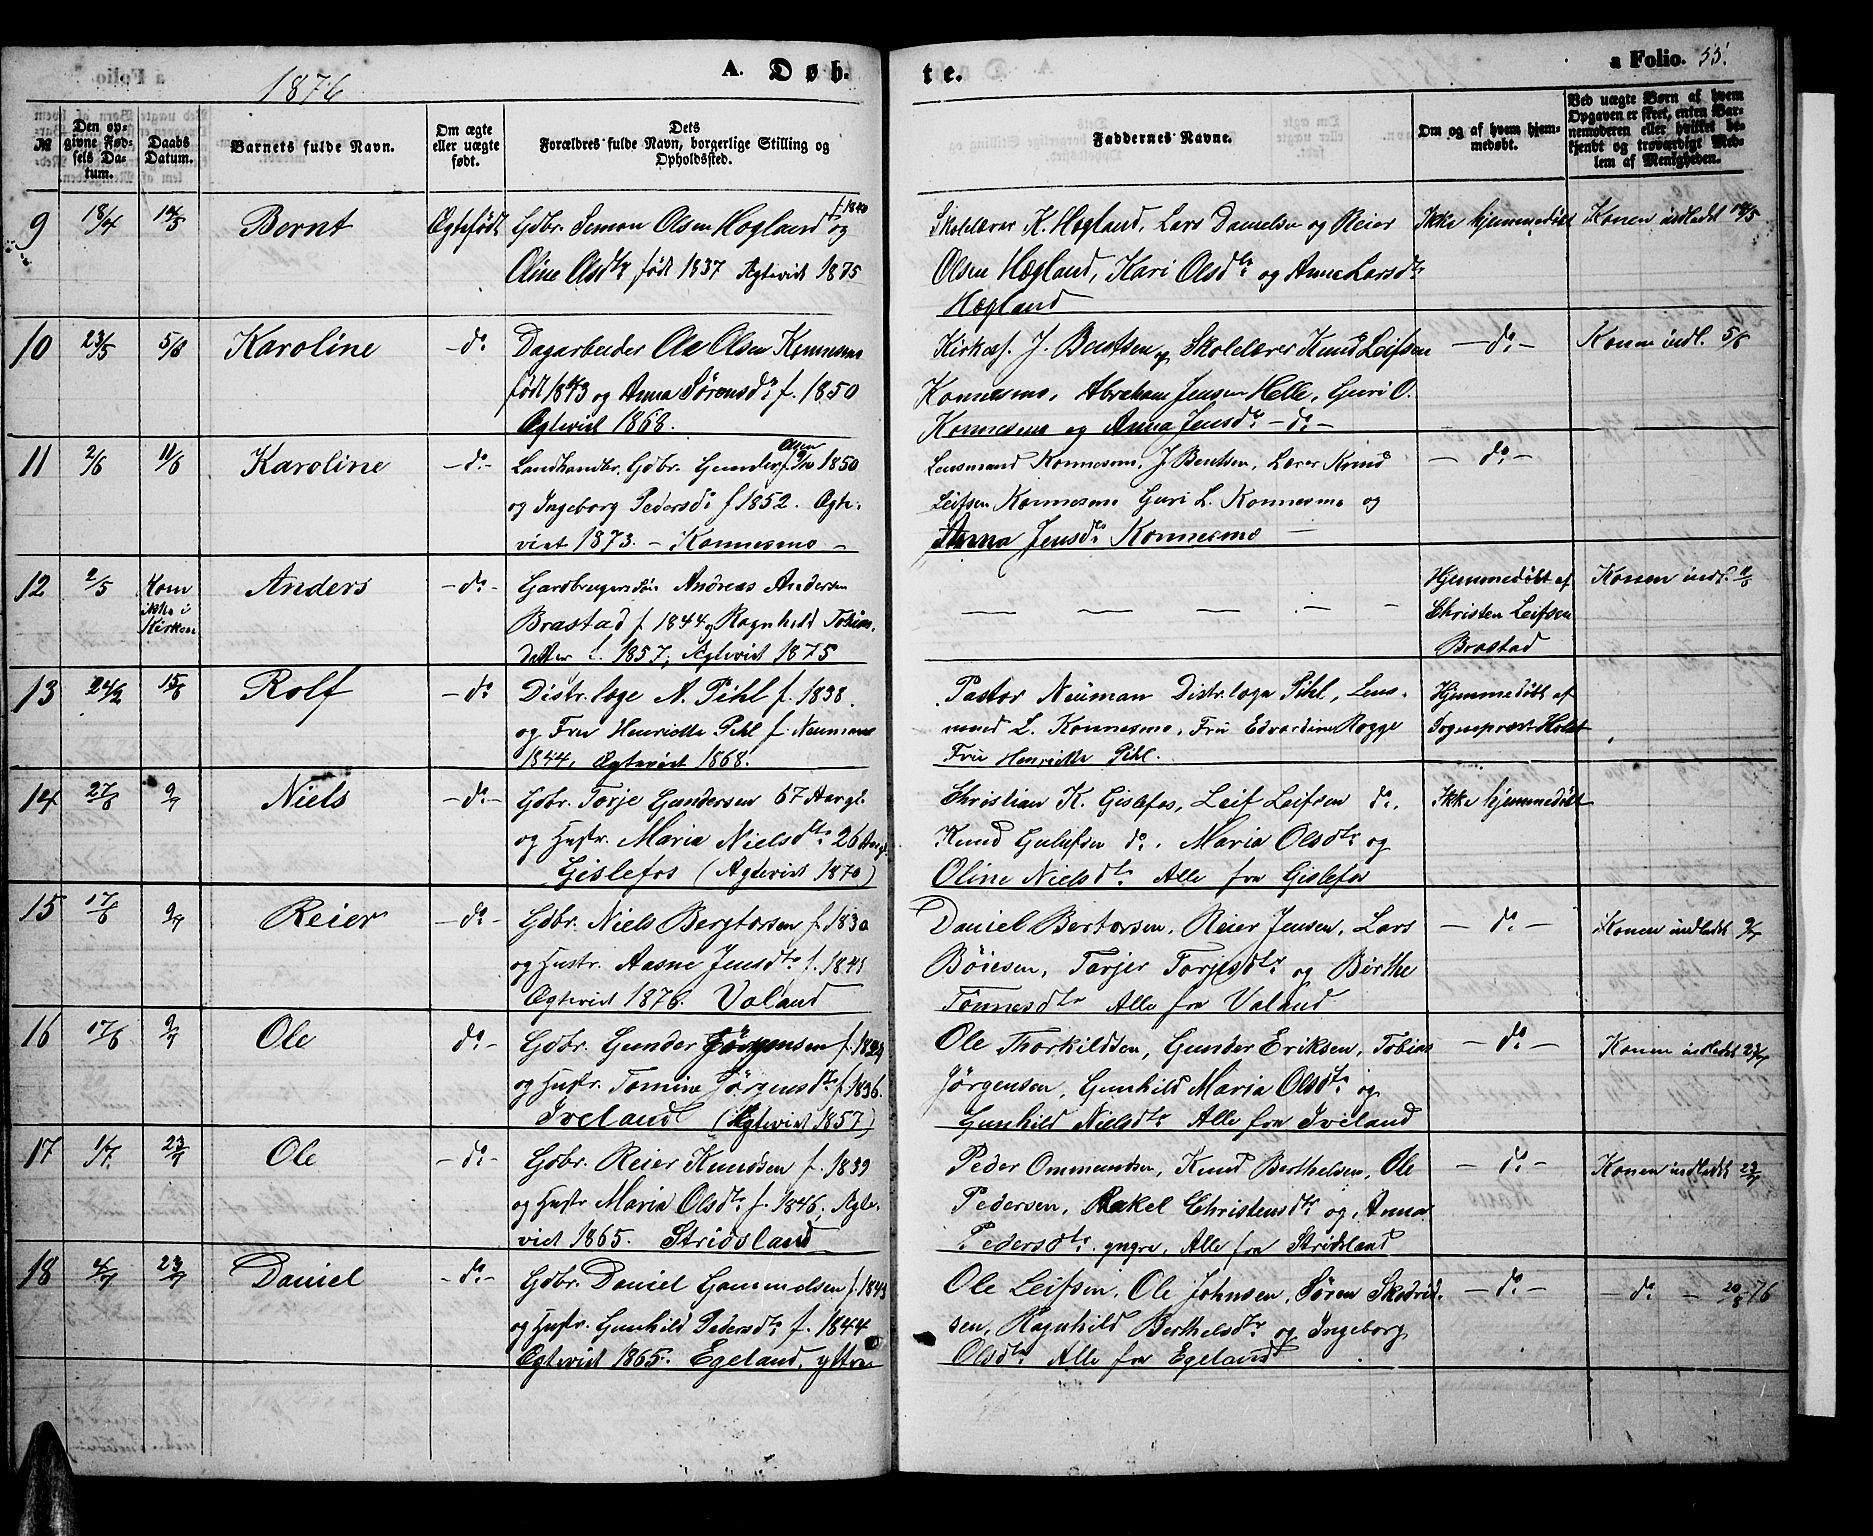 1876
A. Døb-
te.
a Folio. 55.
№
Den opgivne Fødsels Datum.
Daabs Datum.
Barnets fulde Navn.
Om ægte eller uægte født.
Dets Forældres fulde Navn, borgerlige Stilling og Opholdssted.
Faddernes Navne.
Om og af hvem hjemmedøbt.
Ved uægte Børn af hvem Opgaven er skeet, enten Barnemoderen eller hvilket bekjendt og troværdigt Medlem af Menigheden.
9 18/4 14/5 Bernt Ægtefødt Gdbr. Simon Olsen Høgland f. 1840 og
Oline Olsdtr født 1837 Ægteviet 1875
Skolelærer K. Høgland, Lars Danielsen og Reier
Olsen Høgland, Kari Olsdtr og Anna Larsdtr
Høgland
Ikke hjemmedøbt
Konen indledet 14/5
10 23/5 5/6 Karoline - do - Dagarbeider Ole Olsen Konnesmo
født 1843 og Anna Sørensdr f. 1850
Ægteviet 1868.
Kirkes. J. Bentsen og Skolelærer Knud Leifsen
Konnesmo, Abraham Jensen Helle, Guri O.
Konnesmo og Anna Jensdtr - do -
- do -
Konen indl. 5/6
11 2/6 11/6 Karoline - do - Landhandler, Gdbr. Gunder Olsen f. 1850
og Ingeborg Pedersdr f 1852. Ægte-
viet 1873. - Konnesmo -
Lensmand Konnesmo, J Bentsen, Lærer Knud
Leifsen Konnesmo Guri L. Konnesmo og
Anna Jensdtr Konnesmo -
- do -
12 2/5 Kom ikke i Kirken Anders - do - Gardbrugersøn Andreas Andersen
Brastad f. 1844 og Ragnhild Tobias-
datter f. 1857, Ægteviet 1875
- - - - -
Hjemmedøbt af
Christen Leifsen
Brastad
Konen indl. 11/6
13 24/2 15/6 Rolf - do Distr. læge A. Pihl f. 1838
og Fru Henriette Pihl f. Neumann
1844, Ægteviet 1868.
Pastor Neuman Distr. læge Pihl, Lens-
mand L. Konnesmo, Fru Edvardine Rogge
Fru Henriette Pihl.
Hjemmedøbt af
Sognepræst Holst
14 27/6 9/7 Niels - do - Gdbr. Torje Gundersen 67 Aargl.
og Hustr. Maria Nielsdtr 26 Aargl.
Gislefos (Ægteviet 1870)
Christian K. Gislefos, Leif Leifsen do,
Knud Gulufsen do. Maria Olsdtr og
Oline Nielsdtr Alle fra Gislefos
Ikke hjemmedøbt
15 17/6 9/7 Reier - do - Gdbr. Niels Bergtorsen f. 1830
og Hustr. Aasne Jensdtr f. 1841
Ægteviet 1876. Valand
Daniel Bertorsen, Reier Jensen, Lars
Böresen, Torjer Torjesdtr og Börthe
Tönnesdtr Alle fra Valand
- do -
Konen indledet 9/7
16 17/6 9/7 Ole do - Gdbr. Gunder Jörgensen f. 1824
og Hustr. Tomine Jörgensdtr f. 1836.
Iveland (Ægteviet 1857)
Ole Thorkildsen, Gunder Eriksen, Tobias
Jörgensen, Gunhild Maria Olsdtr og
Gunhild Nielsdtr Alle fra Iveland
- do -
Konen indledet 23/7
17 1/7. 23/7 Ole - do - Gdbr. Reier Knudsen f. 1839
og Hustr Maria Olsdtr f. 1846, Ægte-
viet 1865. Stridsland
Peder Ommundsen, Knud Berthelsen, Ole
Pedersen, Rakel Christensdtr og Anna
Pedersdtr yngre, Alle fra Stridsland
- do -
Konen indledet 23/7
18 4/7 23/7 Daniel - do - Gdbr. Daniel Gammelsen f. 1843
og Hustr. Gunhild Pedersdtr f. 1844
Ægteviet 1865. Egeland, yttre
Ole Leifsen, Ole Johnsen, Søren Skedrid-
sen, Ragnhild Berthelsdtr og Ingeborg
Olsdtr Alle fra Egeland
- do -
- do - 20/8 76